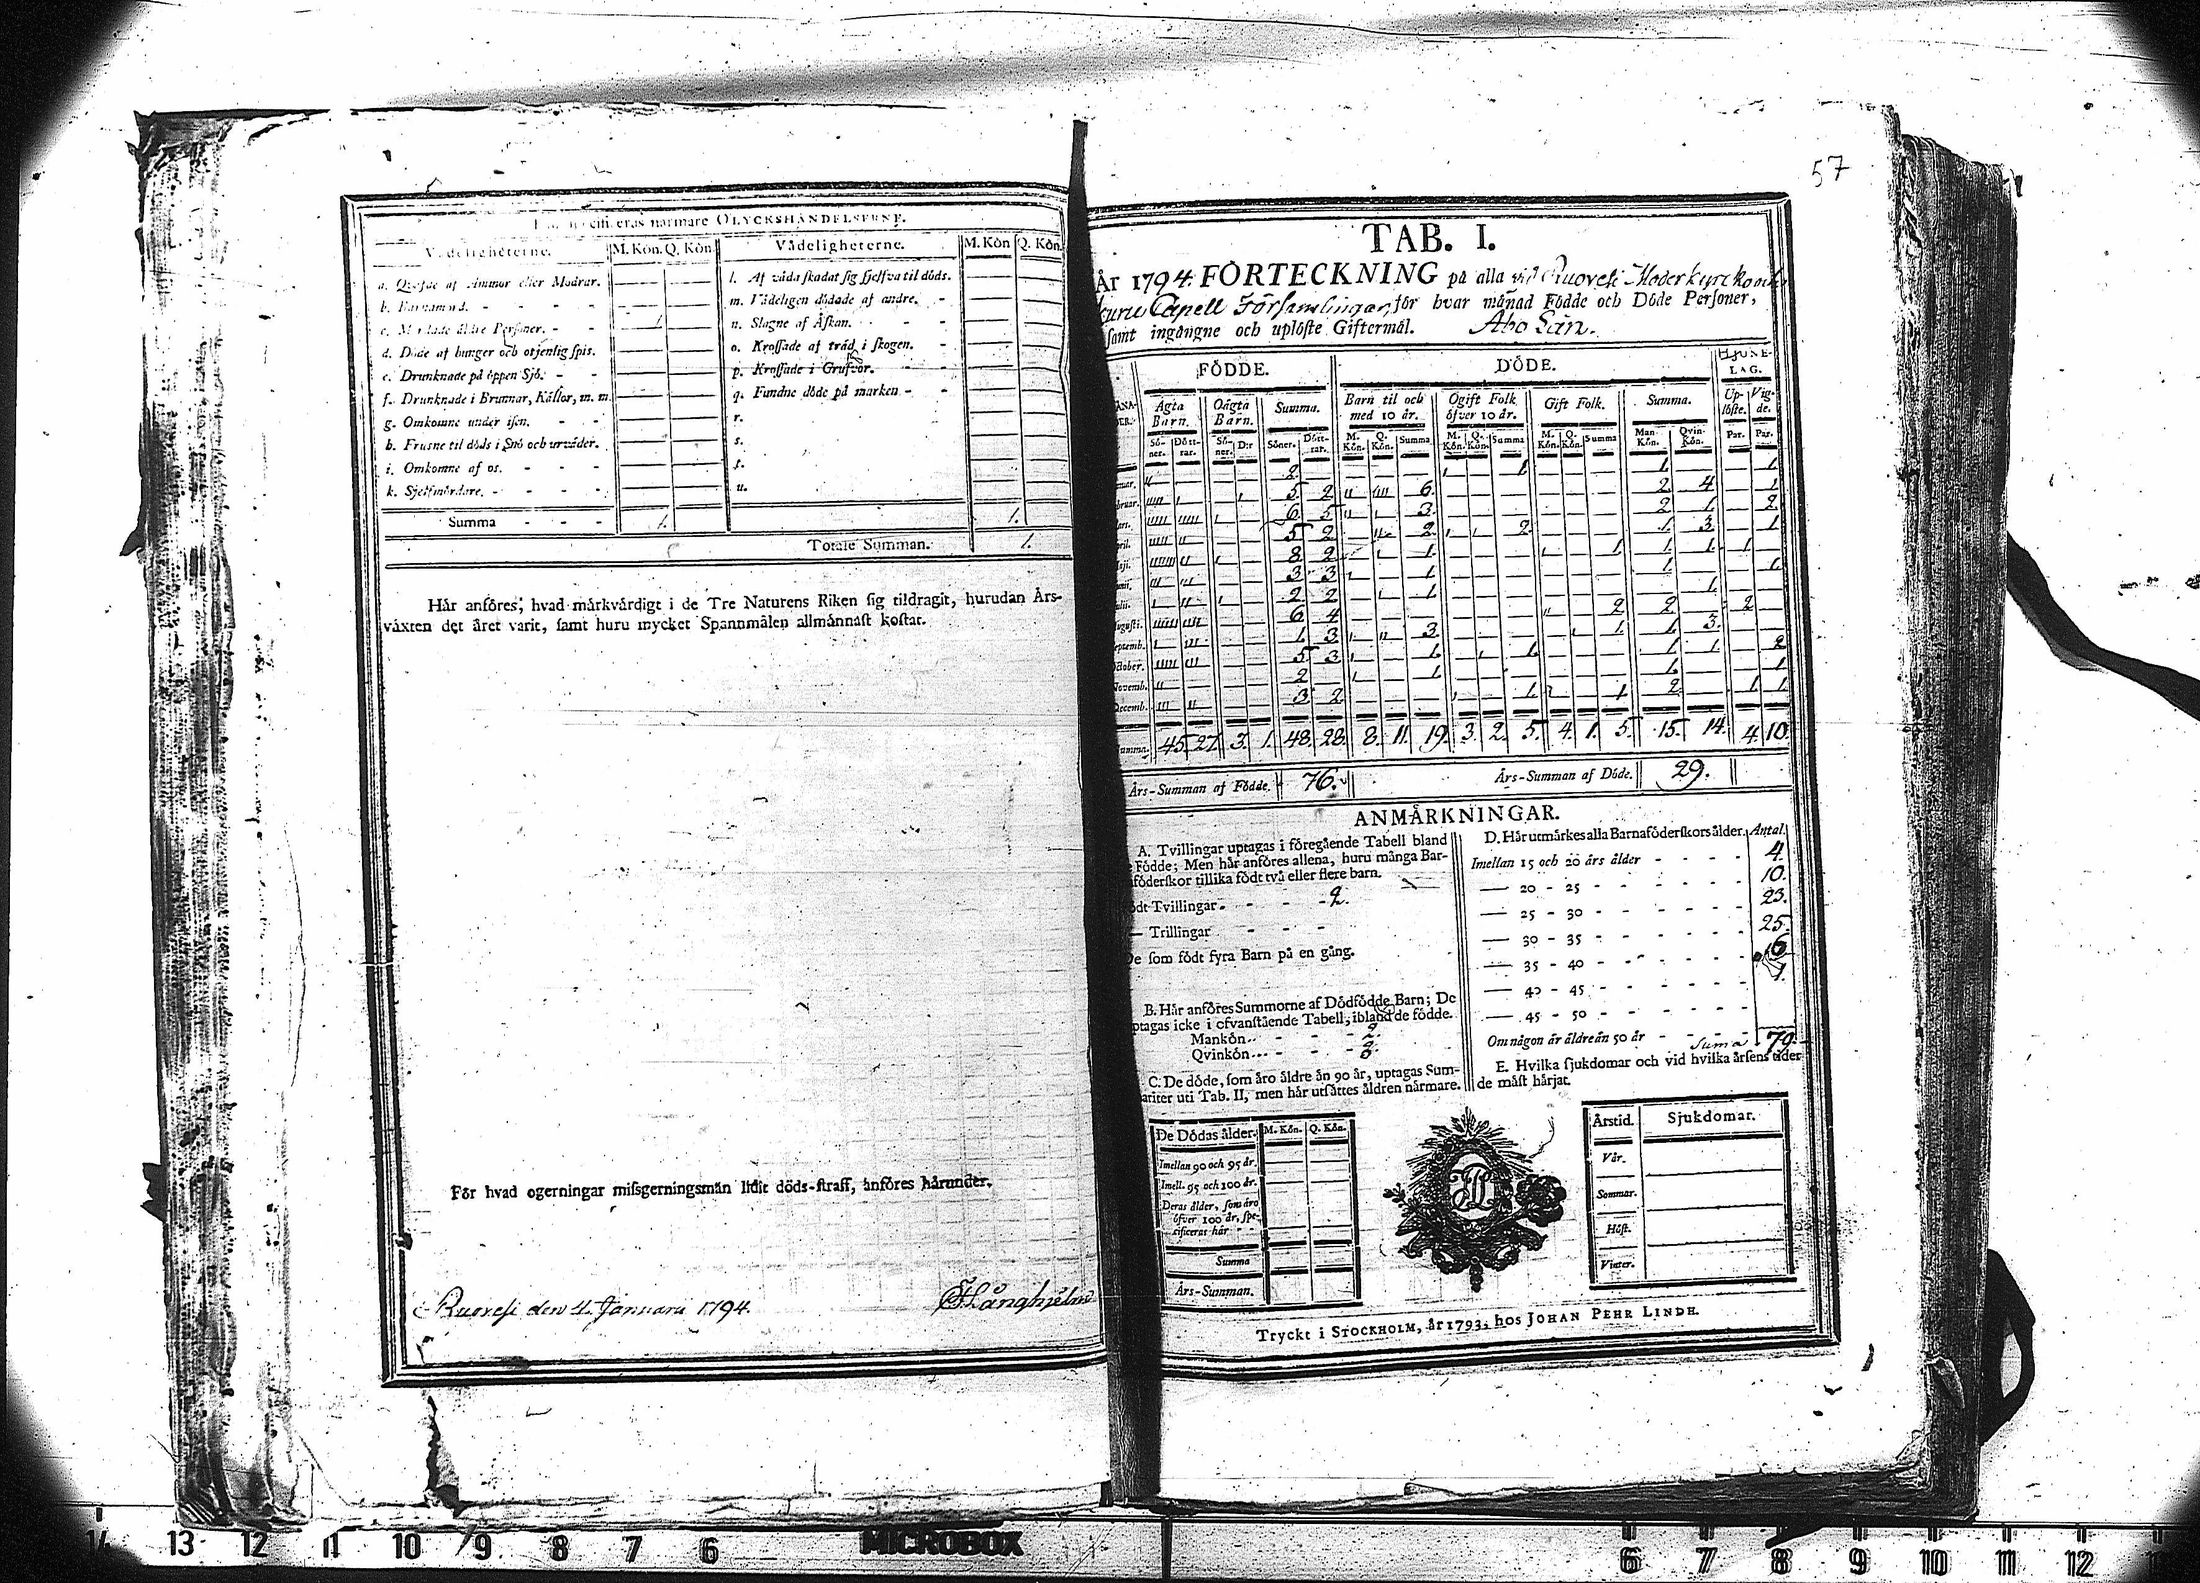 57
OLYCKSHÄNDELSERNE.
Vådeligheterne. M. Kön. Q. Kön. Vådeligheterne. M. Kön Q. Kön.
a. Qvafde af Ammor eller Modrar.
b. Barnamord.
c. Mördade äldre Personer. 1
d. Döde af hunger och otjenlig spis.
e. Drunknade på öppen Sjö.
f. Drunknade i Brunnar, Källor, m. m.
g. Omkomne under isen.
h. Frusne til döds i Snö och urväder.
i. Omkomne af os.
k. Sjelfmördare.
l. Af våda skadat sig sjelfva til döds.
m. Vådeligen dödade af andre.
n. Slagne af Åskan.
o. Krossade af träd i skogen.
p. Krossade i Grufvor.
q. Fundne döde på marken
r.
s.
t.
u.
Summa 1. 1.
Totale Summan. 1.
Här anföres, hvad märkvärdigt i de Tre Naturens Riken sig tildragit, hurudan Års-
växten det året varit, samt huru mycket Spannmålen allmännast kostat.
För hvad ogerningar missgerningsmän lidit döds-straff, anföres härunder.
Ruovesi den 4. Januarii 1794.
Långhjelm
TAB. I.
År 1794. FÖRTECKNING på alla vid Ruovesi Moderkyrcko
Capell Församlingar, för hvar månad Födde och Döde Personer,
samt ingångne och uplöste Giftermål. Åbo Län.
FÖDDE. DÖDE. HJONE-LAG.
Ägta Barn. Oägta Barn. Summa. Barn til och med 10 år. Ogift Folk öfver 10 år. Gift Folk. Summa. Up-löste. Vig-de.
Sö-ner. Dött-rar. Sö-ner. D:r Söner. Dött-rar. M. Kön. Q. Kön. Summa M. Kön. Q. Kön. Summa M. Kön. Q. Kön. Summa Man-Kön. Qvin-Kön. Par. Par.
2 1 1 1
5 2 6 2 4 1
6 5 3 2 1 2
5 2 2 2 1 3 1
8 2 1 1 1 1 1
3 3 1 1 1
2 2 1 1
6 4 2 2 2
1 3 3 1 1 3
5 3 1 1 1 1 2
2 1 1 1
3 2 1 1 2 1 1
Summa. 45 27 3. 1. 48 28 8. 11. 19. 3. 2. 5. 4. 1. 5. 15. 14. 4 10
Års-Summan af Födde. 76. Års-Summan af Döde. 29.
ANMÄRKNINGAR.
A. Tvillingar uptagas i föregående Tabell bland
Födde; Men här anföres allena, huru många Bar-
föderskor tillika födt två eller flere barn.
Tvillingar. 2.
Trillingar
som födt fyra Barn på en gång.
B. Här anföres Summorne af Dödfödde Barn; De
uptagas icke i ofvanstående Tabell, ibland de födde.
Mankön 2.
Qvinkön
C. De döde, som äro äldre än 90 år, uptagas Sum-
uti Tab. II, men här utsättes åldren närmare.
De Dödas ålder. M. Kön. Q. Kön.
Imellan 90 och 95 år.
Imell. 95 och 100 år.
Deras ålder, som äro
öfver 100 år, spe-
cificeras här
Summa
Års-Summan.
D. Här utmärkes alla Barnaföderskors ålder. Antal
Imellan 15 och 20 års ålder 4.
20 - 25 10.
25 - 30 23.
30 - 35 25.
35 - 40
40 - 45
45 - 50
Om någon är äldre än 50 år
Suma 79.
E. Hvilka sjukdomar och vid hvilka årsens tider
de mäst härjat.
Årstid. Sjukdomar.
Vår.
Sommar.
Höst.
Vinter.
Tryckt i STOCKHOLM, år 1793, hos JOHAN PEHR LINDH.
14 13 12 11 10 9 8 7 6 MICROBOX 6 7 8 9 10 11 12